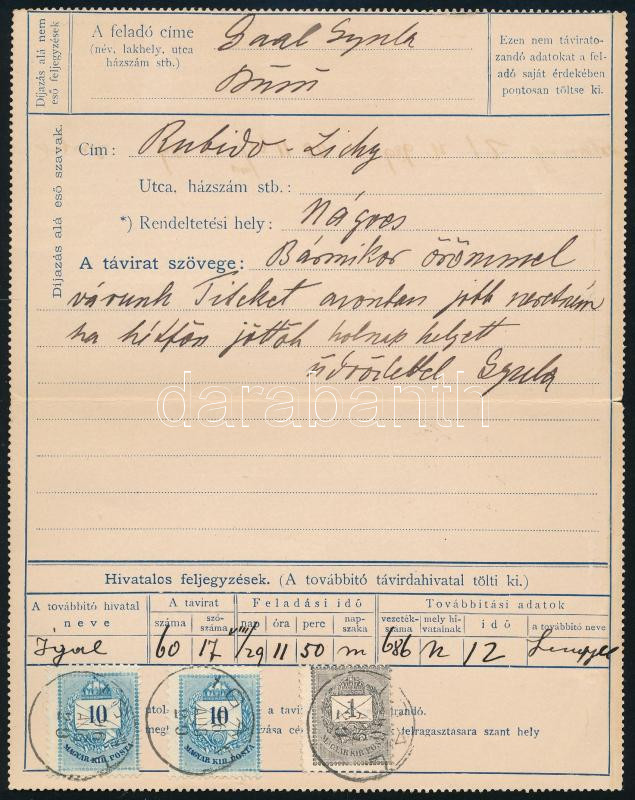 Díjazás alá nem eső feljegyzések
A feladó címe
(név, lakhely, utca házszám stb.)
Gaal Gyula
Büsü
Ezen nem távirato-
zandó adatokat a fel-
adó saját érdekében
pontosan töltse ki.
Díjazás alá eső szavak.
Cím: Rubido Zichy
Utca, házszám stb.:
*) Rendeltetési hely: Nágocs
A távirat szövege: Bármikor örömmel
várunk Titeket azonban jobb
ha hétfőn jöttök holnap helyett
üdvözlettel Gyula
darabanth
Hivatalos feljegyzések. (A továbbitó távirdahivatal tölti ki.)
A továbbitó hivatal neve
A távirat
száma
szó-száma
Feladási idő
nap
óra
perc
nap-szaka
Továbbitási adatok
vezeték-száma
mely hi-vatalnak
idő
a továbbitó neve
Igal 60 17 VIII/29 11 50 m 686 12
10 10 1
MAGYAR KIR. POSTA MAGYAR KIR. POSTA MAGYAR KIR. POSTA
a távi
felragasztására szant hely